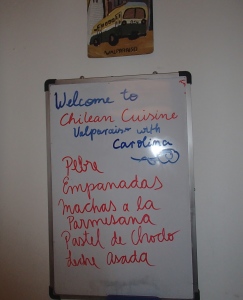 Welcome to
Chilean Cuisine
Valparaiso with
Carolina
Pebre
Empanadas
Machas a la
Parmesana
Pastel de Choclo
Leche Asada